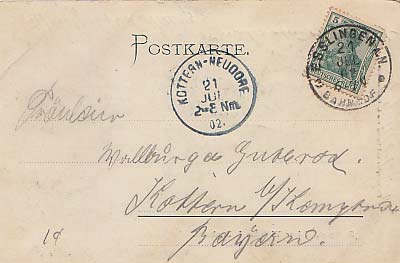 POSTKARTE.
5
ESSLINGEN N.
21
JUL
BAHNHOF
KOTTERN-NEUDORF
21
JUL
2-3 Nm
02.
Fräulein
Wallburga Guterod.
Kottern b/Kempten
Bayern.